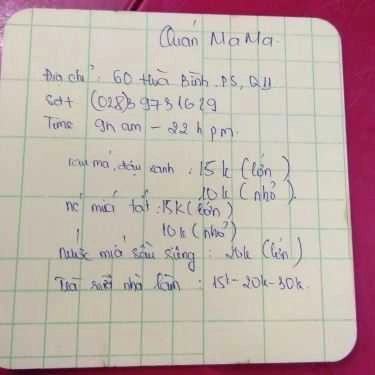 Quán MaMa.
Địa chỉ: 60 Hoà Bình, P5, Q11
Sđt (028)3973 1629
Time 9h am – 22 h pm.
rau má, đậu xanh : 15 k (lớn)
10k (nhỏ).
mía tắt : 15K (lớn)
10k (nhỏ)
Nước mía sầu riêng : 20k (lớn)
Trà sữa nhà làm : 15k - 20k - 30k.